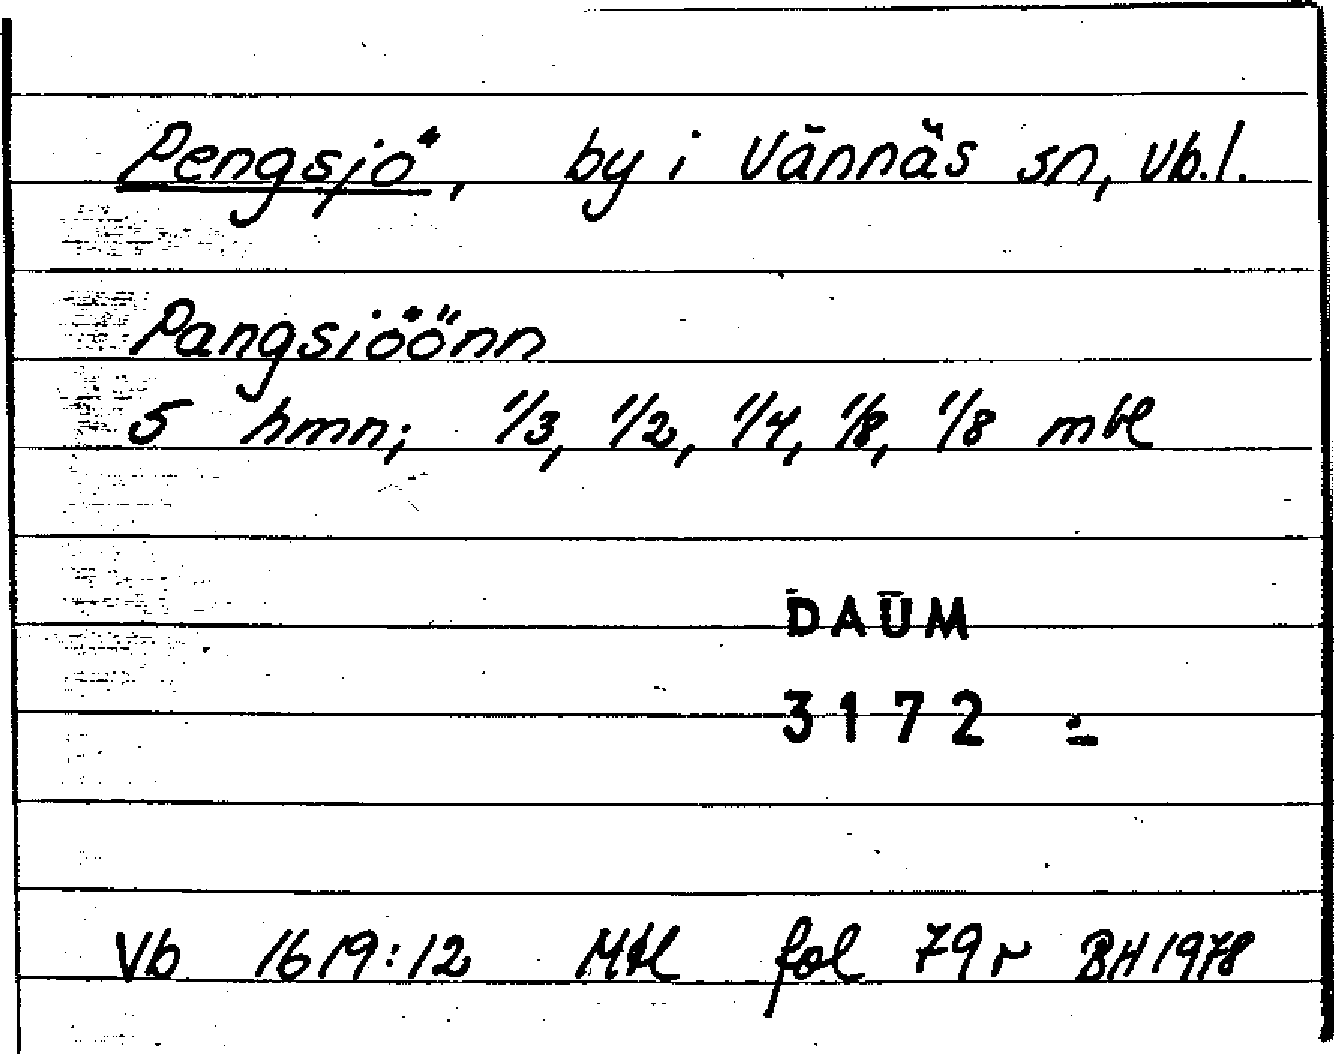 Pengsjö, by i Vännäs sn, Vb.l.
Pangsiöönn
5 hmn; 1/3, 1/2, 1/4, 1/8, 1/8 mtl
DAUM
3172 :
Vb 1619:12 Mtl fol 79 r BH 1978